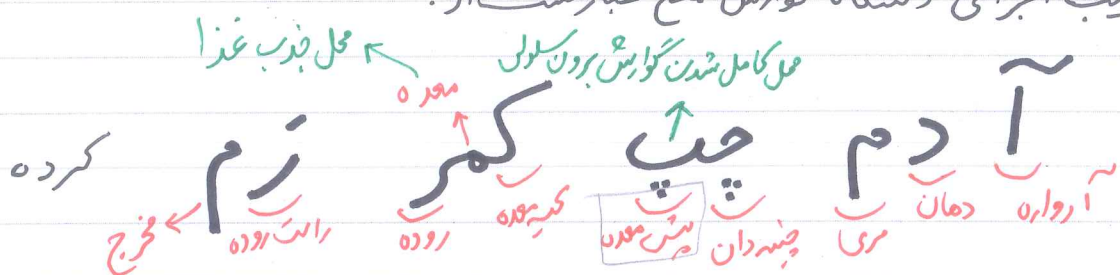 گوارش ملخ عبارتست از:
محل جذب غذا محل کامل شدن گوارش برون سلولی
معده
آ دم چپ کمر رم کرده
آرواره دهان مری چینه دان پیش معده کیسه معده روده راست روده مخرج